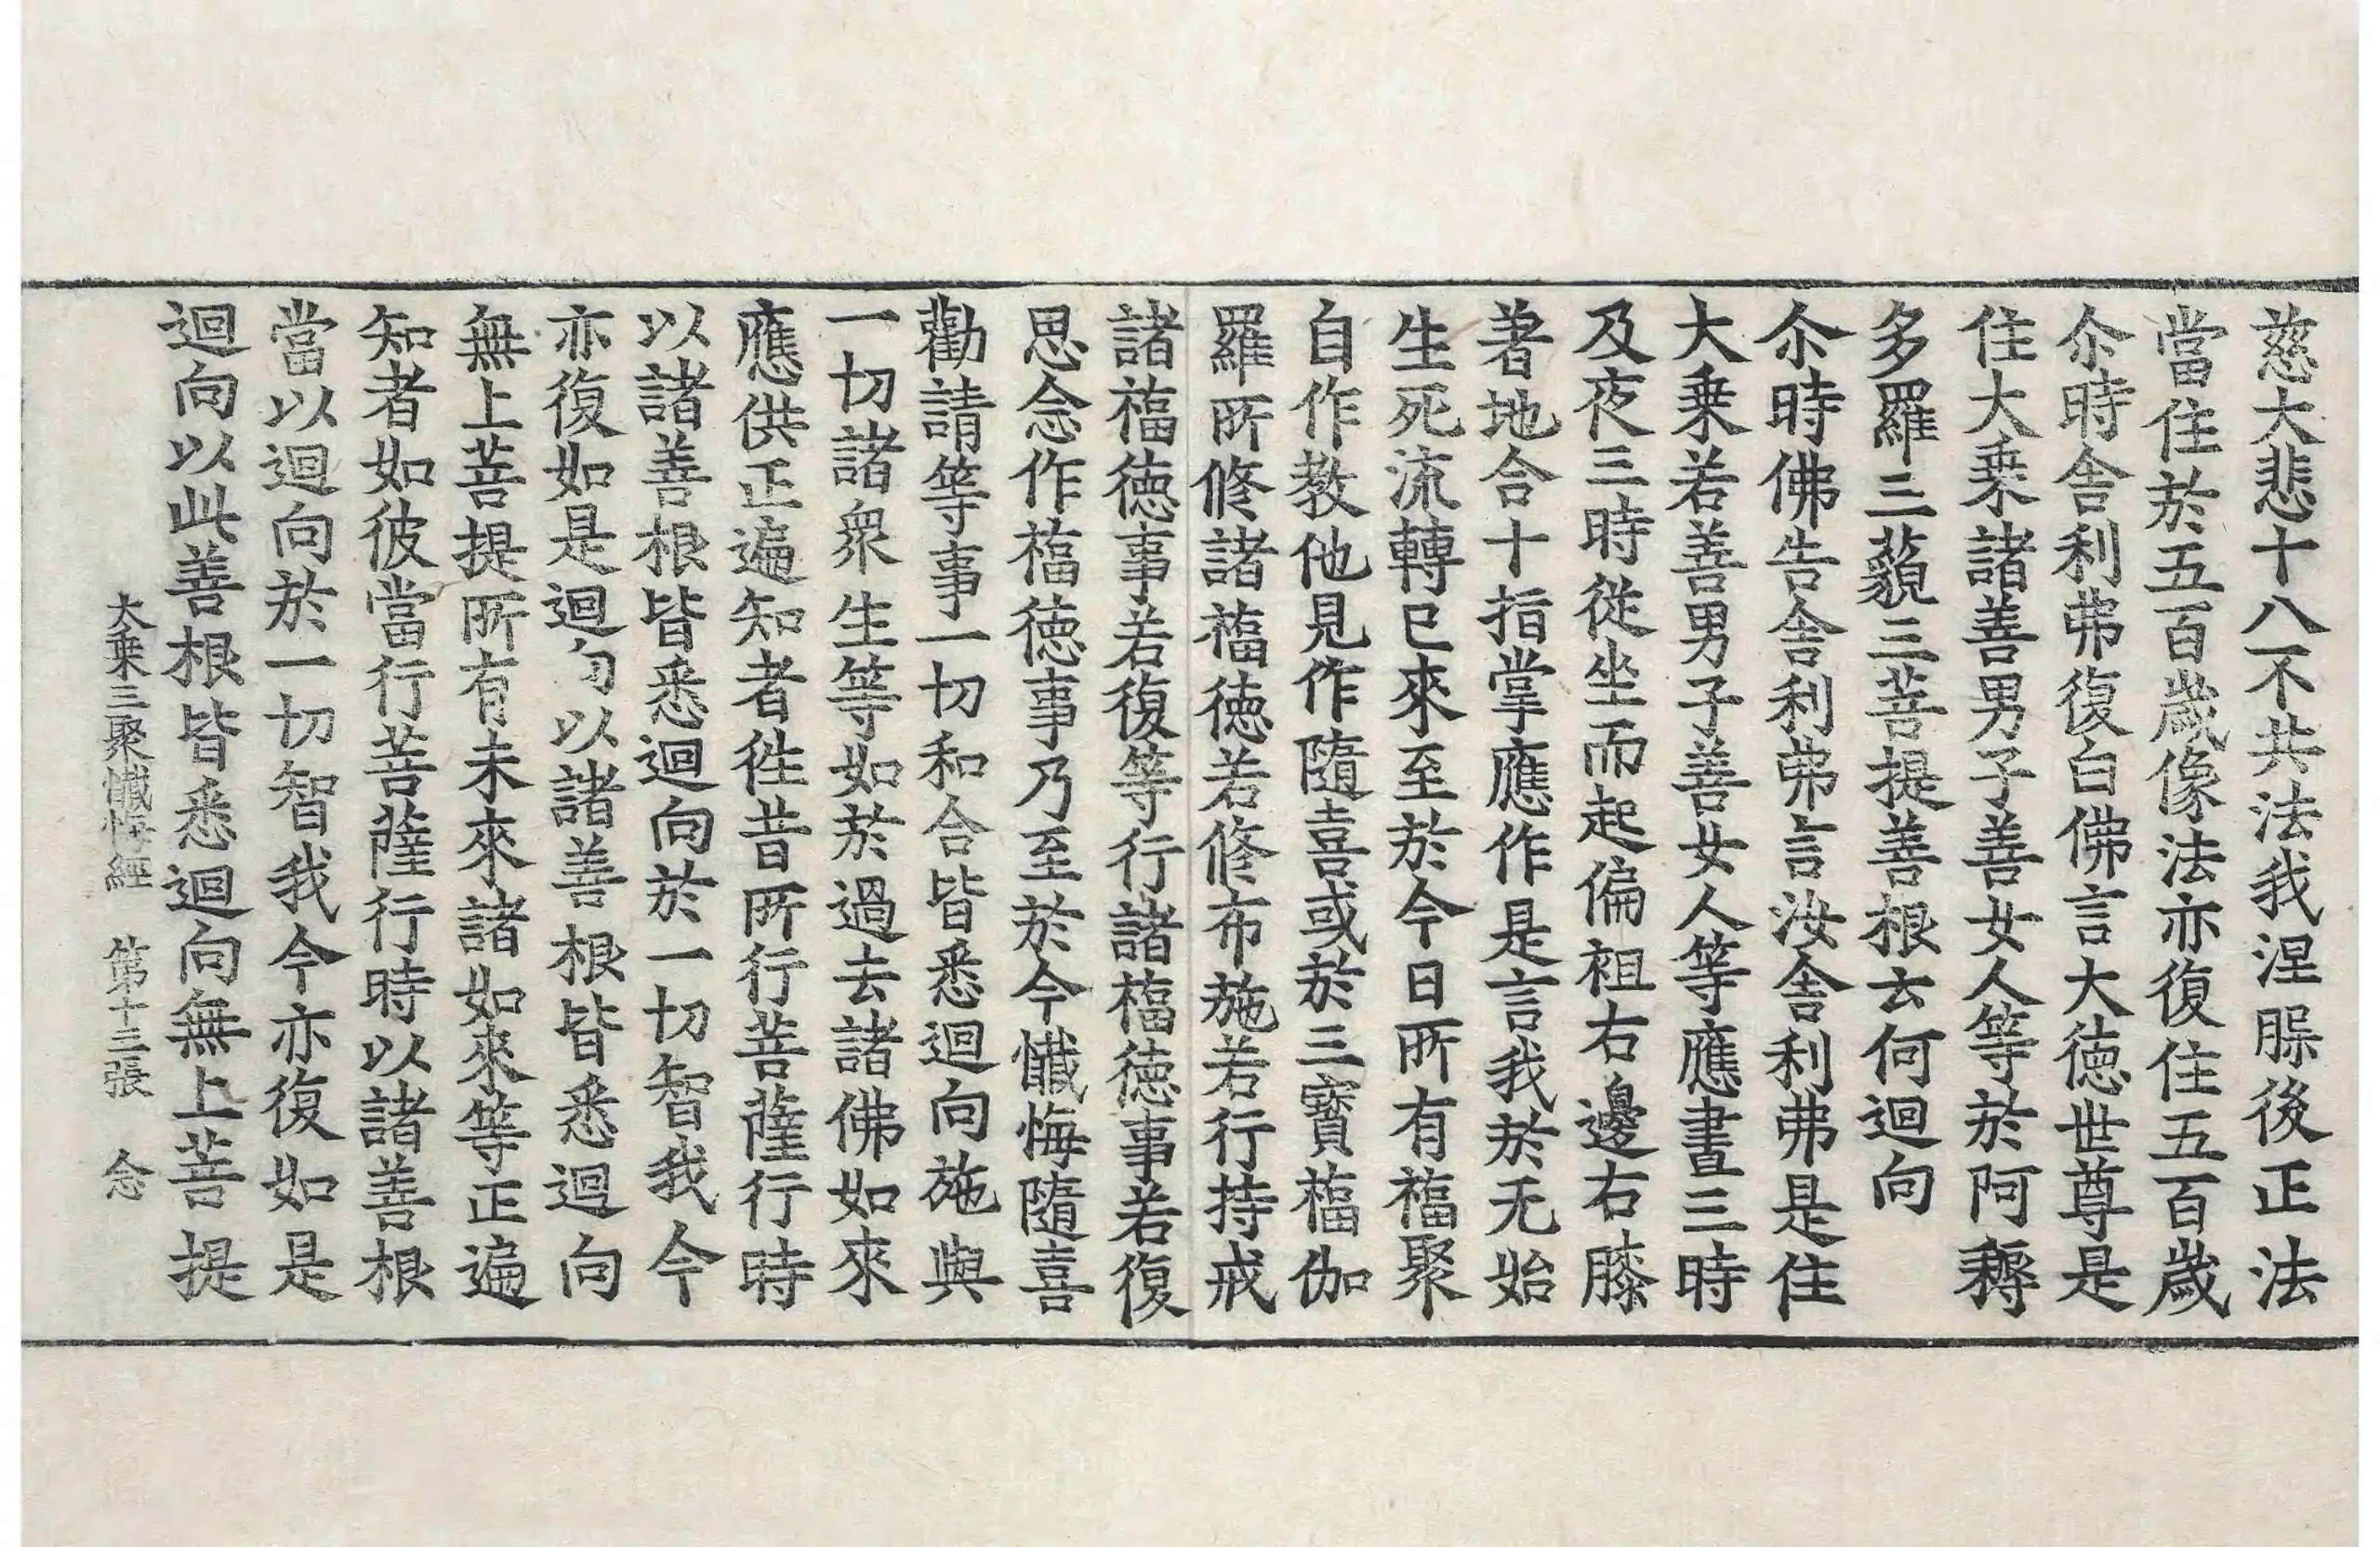 慈大悲十八不共法我涅槃後正法
當住於五百歲像法亦復住五百歲
尒時舎利弗復白佛言大德世尊是
住大乗諸善男子善女人等於阿耨
多羅三藐三菩提善根云何迴向
尒時佛告舎利弗言汝舎利弗是住
大乗若善男子善女人等應晝三時
及夜三時從坐而起偏袒右邊右膝
著地合十指掌應作是言我於无始
生死流轉已來至於今日所有福聚
自作教他見作隨喜或於三寳福伽
羅所修諸福徳若修布施若行持戒
諸福徳事若復等行諸福徳事若復
思念作福徳事乃至於今懺悔隨喜
勸請等事一切和合皆悉迴向施與
一切諸衆生等如於過去諸佛如來
應供正遍知者徃昔所行菩薩行時
以諸善根皆悉迴向於一切智我今
亦復如是迴向以諸善根皆悉迴向
無上菩提所有未來諸如來等正遍
知者如彼當行菩薩行時以諸善根
當以迴向於一切智我今亦復如是
迴向以此善根皆悉迴向無上菩提
大乗三聚懺悔經　第十三張　念